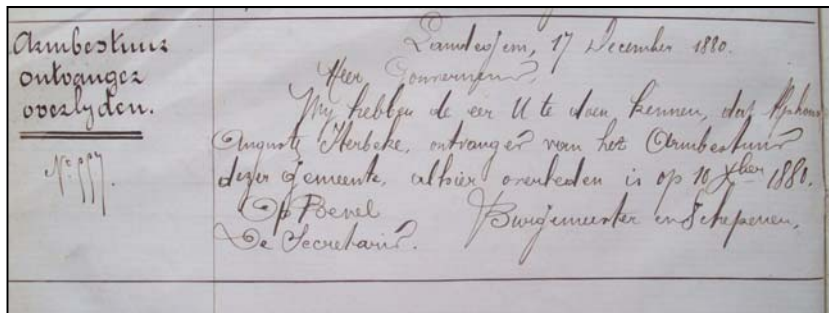 Armbestuur
ontvanger
overlyden.
N° 557.
Landegem, 17 December 1880.
Heer Gouverneur,
Wy hebben de eer U te doen kennen, dat Alphons
Auguste Herbeke, ontvanger van het Armbestuur
dezer gemeente, alhier overleden is op 10 Xber 1880.
Op Bevel
Burgemeester en Schepenen,
De Secretaris.